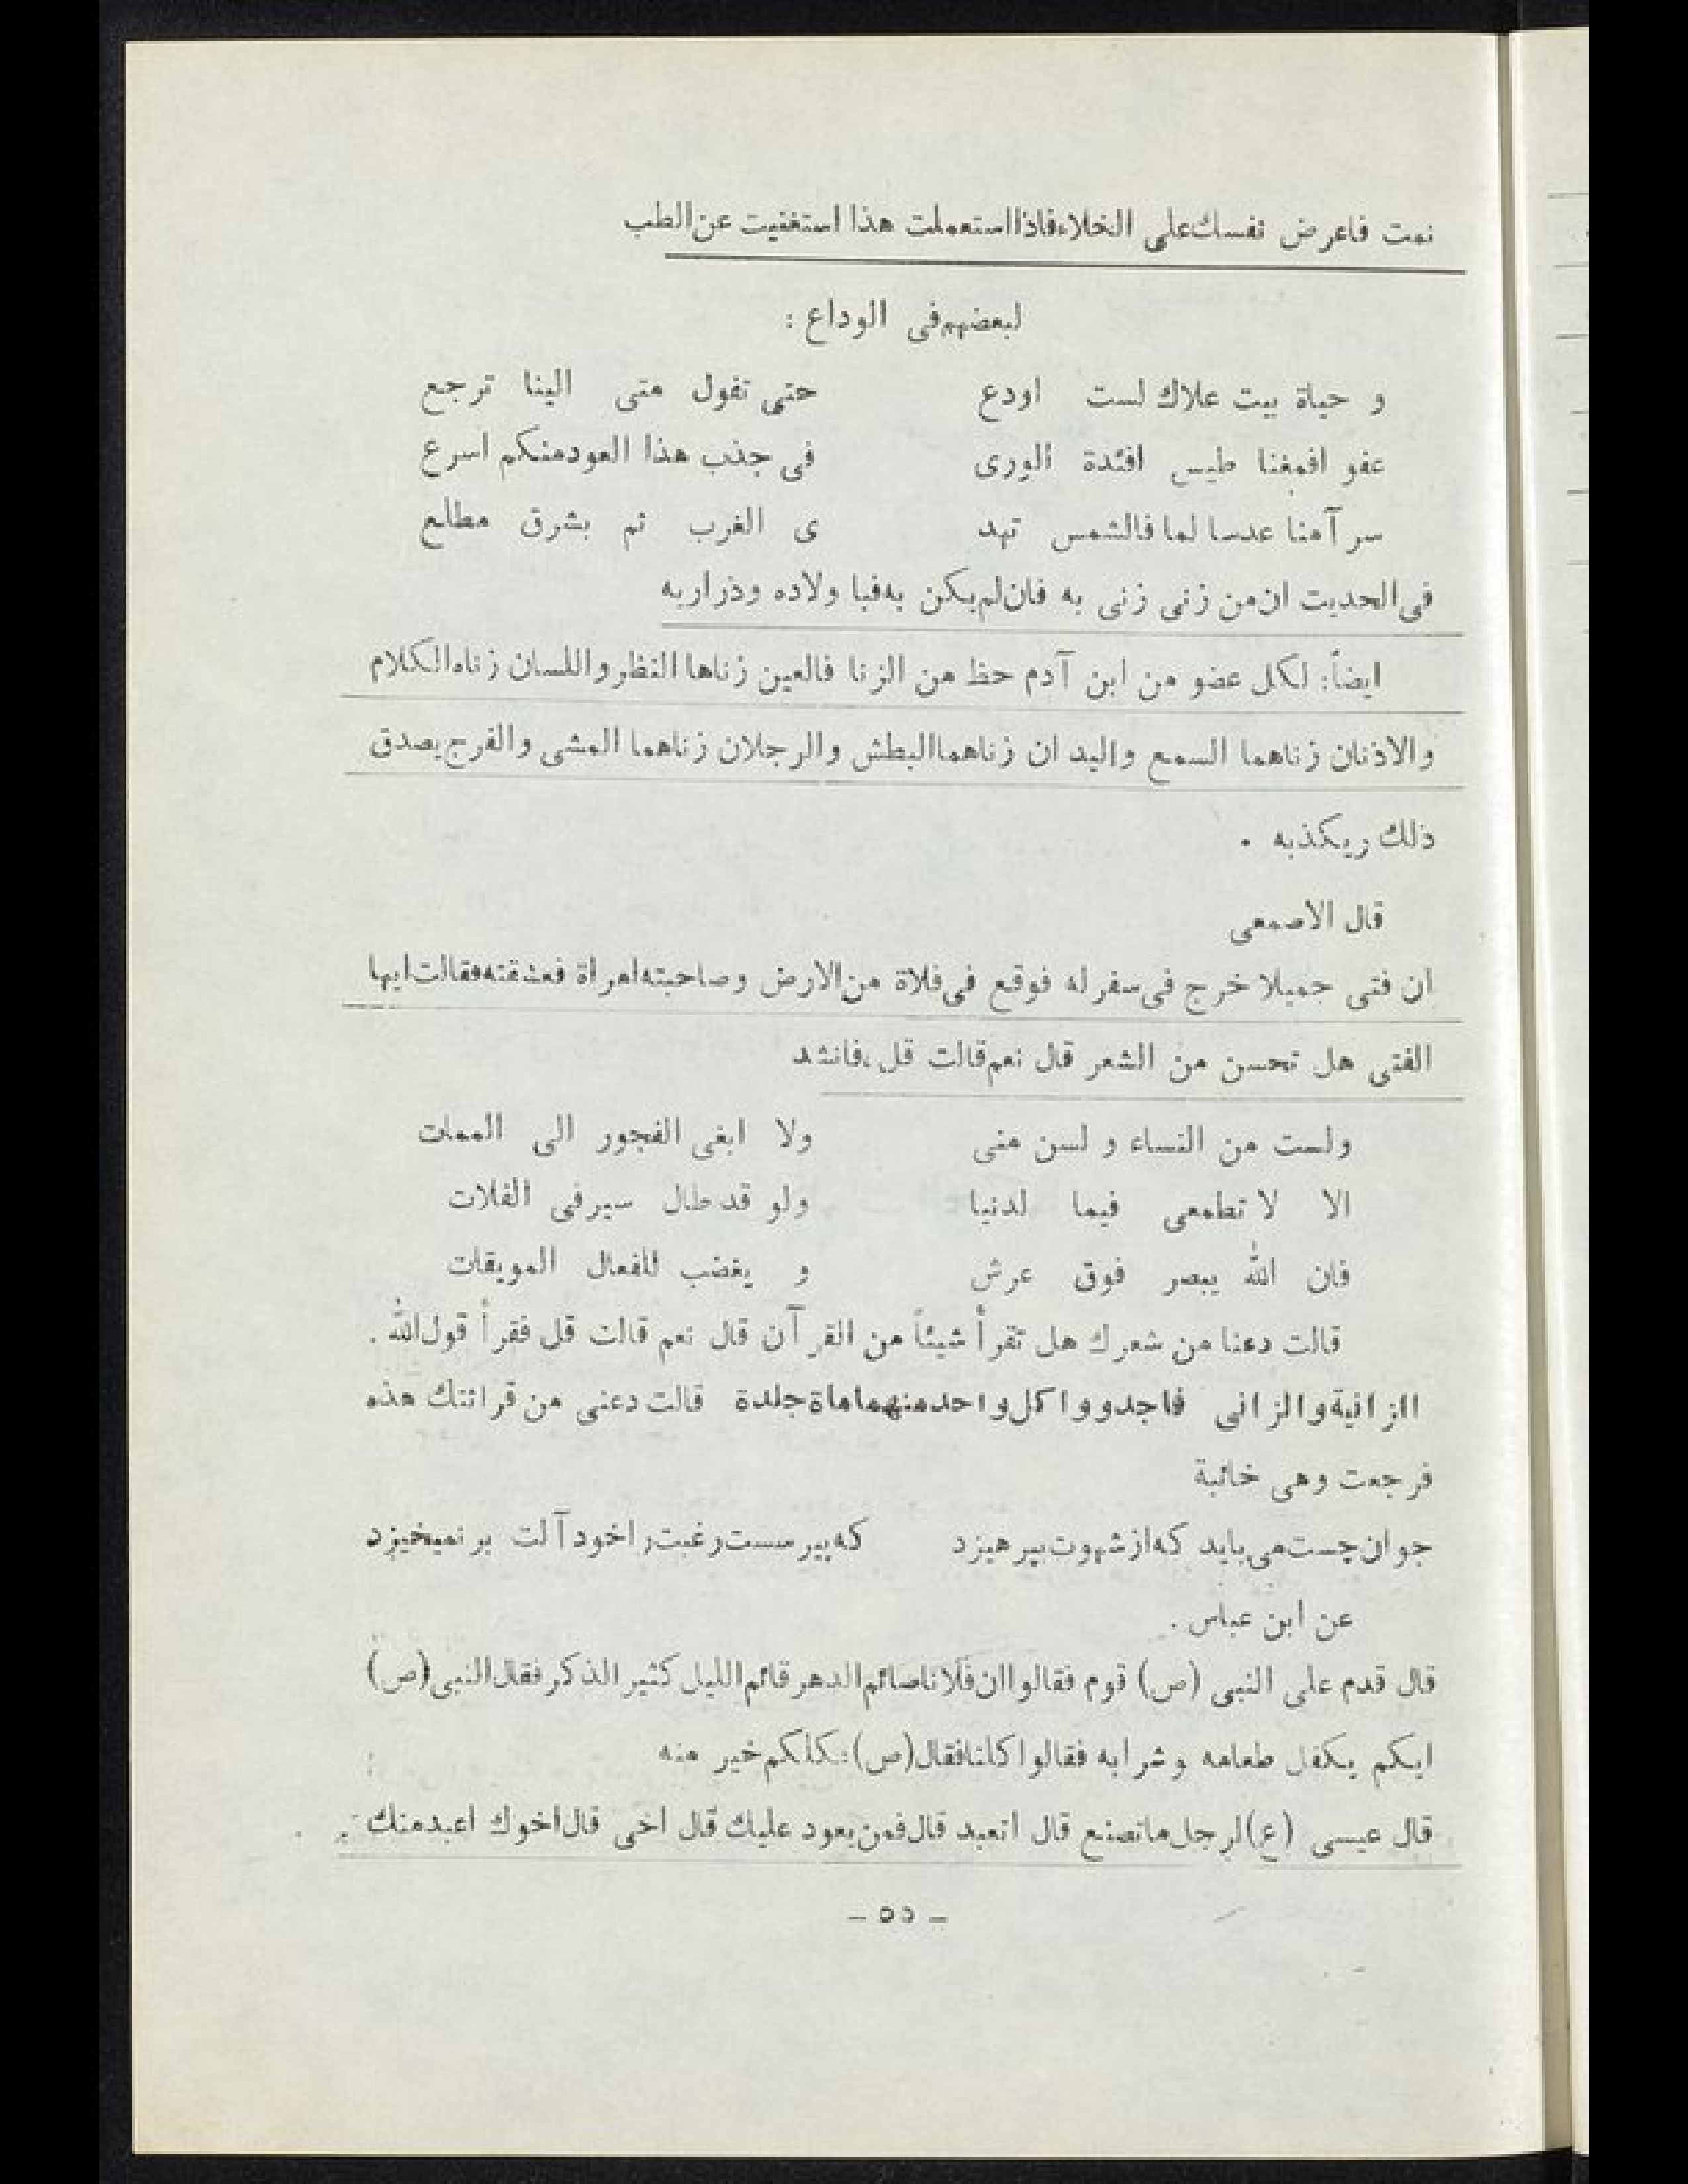 نمت فاعرض نفسك على الخلاء،فاذااستعملت هذا استغنيت عن الطب
لبعضهم فى الوداع :
و حياة بيت علاك لست اودع حتى تقول متى الينا ترجع
عفو افمغنا طيس افئدة الورى فى جذب هذا العود منكم اسرع
سر آمنا عدسا لما فالشمس تهد ى الغرب ثم بشرق مطلع
فى الحديت ان من زنى زنى به فان لم يكن به فبا ولاده وذراريه
ايضاً: لكل عضو من ابن آدم حظ من الزنا فالعين زناها النظر واللسان زناه الكلام
والاذنان زناهما السمع واليد ان زناهما البطش والرجلان زناهما المشى والفرج يصدق
ذلك ريكذبه .
قال الاصمعى
ان فتى جميلا خرج فى سفر له فوقع فى فلاة من الارض وصاحبته امراة فعشقته فقالت ايها
الفتى هل تحسن من الشعر قال نعم قالت قل،فانشد
ولست من النساء و لسن منى ولا ابغى الفجور الى الممات
الا لا تطمعى فيما لدنيا ولو قد طال سير فى الفلات
فان الله يبصر فوق عرش و يغضب للفعال الموبقات
قالت دعنا من شعرك هل تقرأ شيئاً من القرآن قال نعم قالت قل فقرأ قول الله .
الزانية والزانى فاجدوو اكل واحد منهما ماة جلدة قالت دعنى من قرائتك هذه
فرجعت وهى خائبة
جوان چست مى بايد كه از شهوت بپرهيزد كه پير سست رغبت را خود آلت بر نميخيزد
عن ابن عباس .
قال قدم على النبى (ص) قوم فقالوا ان فلانا صائم الدهر قائم الليل كثير الذكر فقال النبى (ص)
ايكم يكفل طعامه وشرابه فقالوا كلنا فقال (ص): كلكم خير منه
قال عيسى (ع) لرجل ما تصنع قال اتعبد قال فمن يعود عليك قال اخى قال اخوك اعبد منك
- ٥٥ -